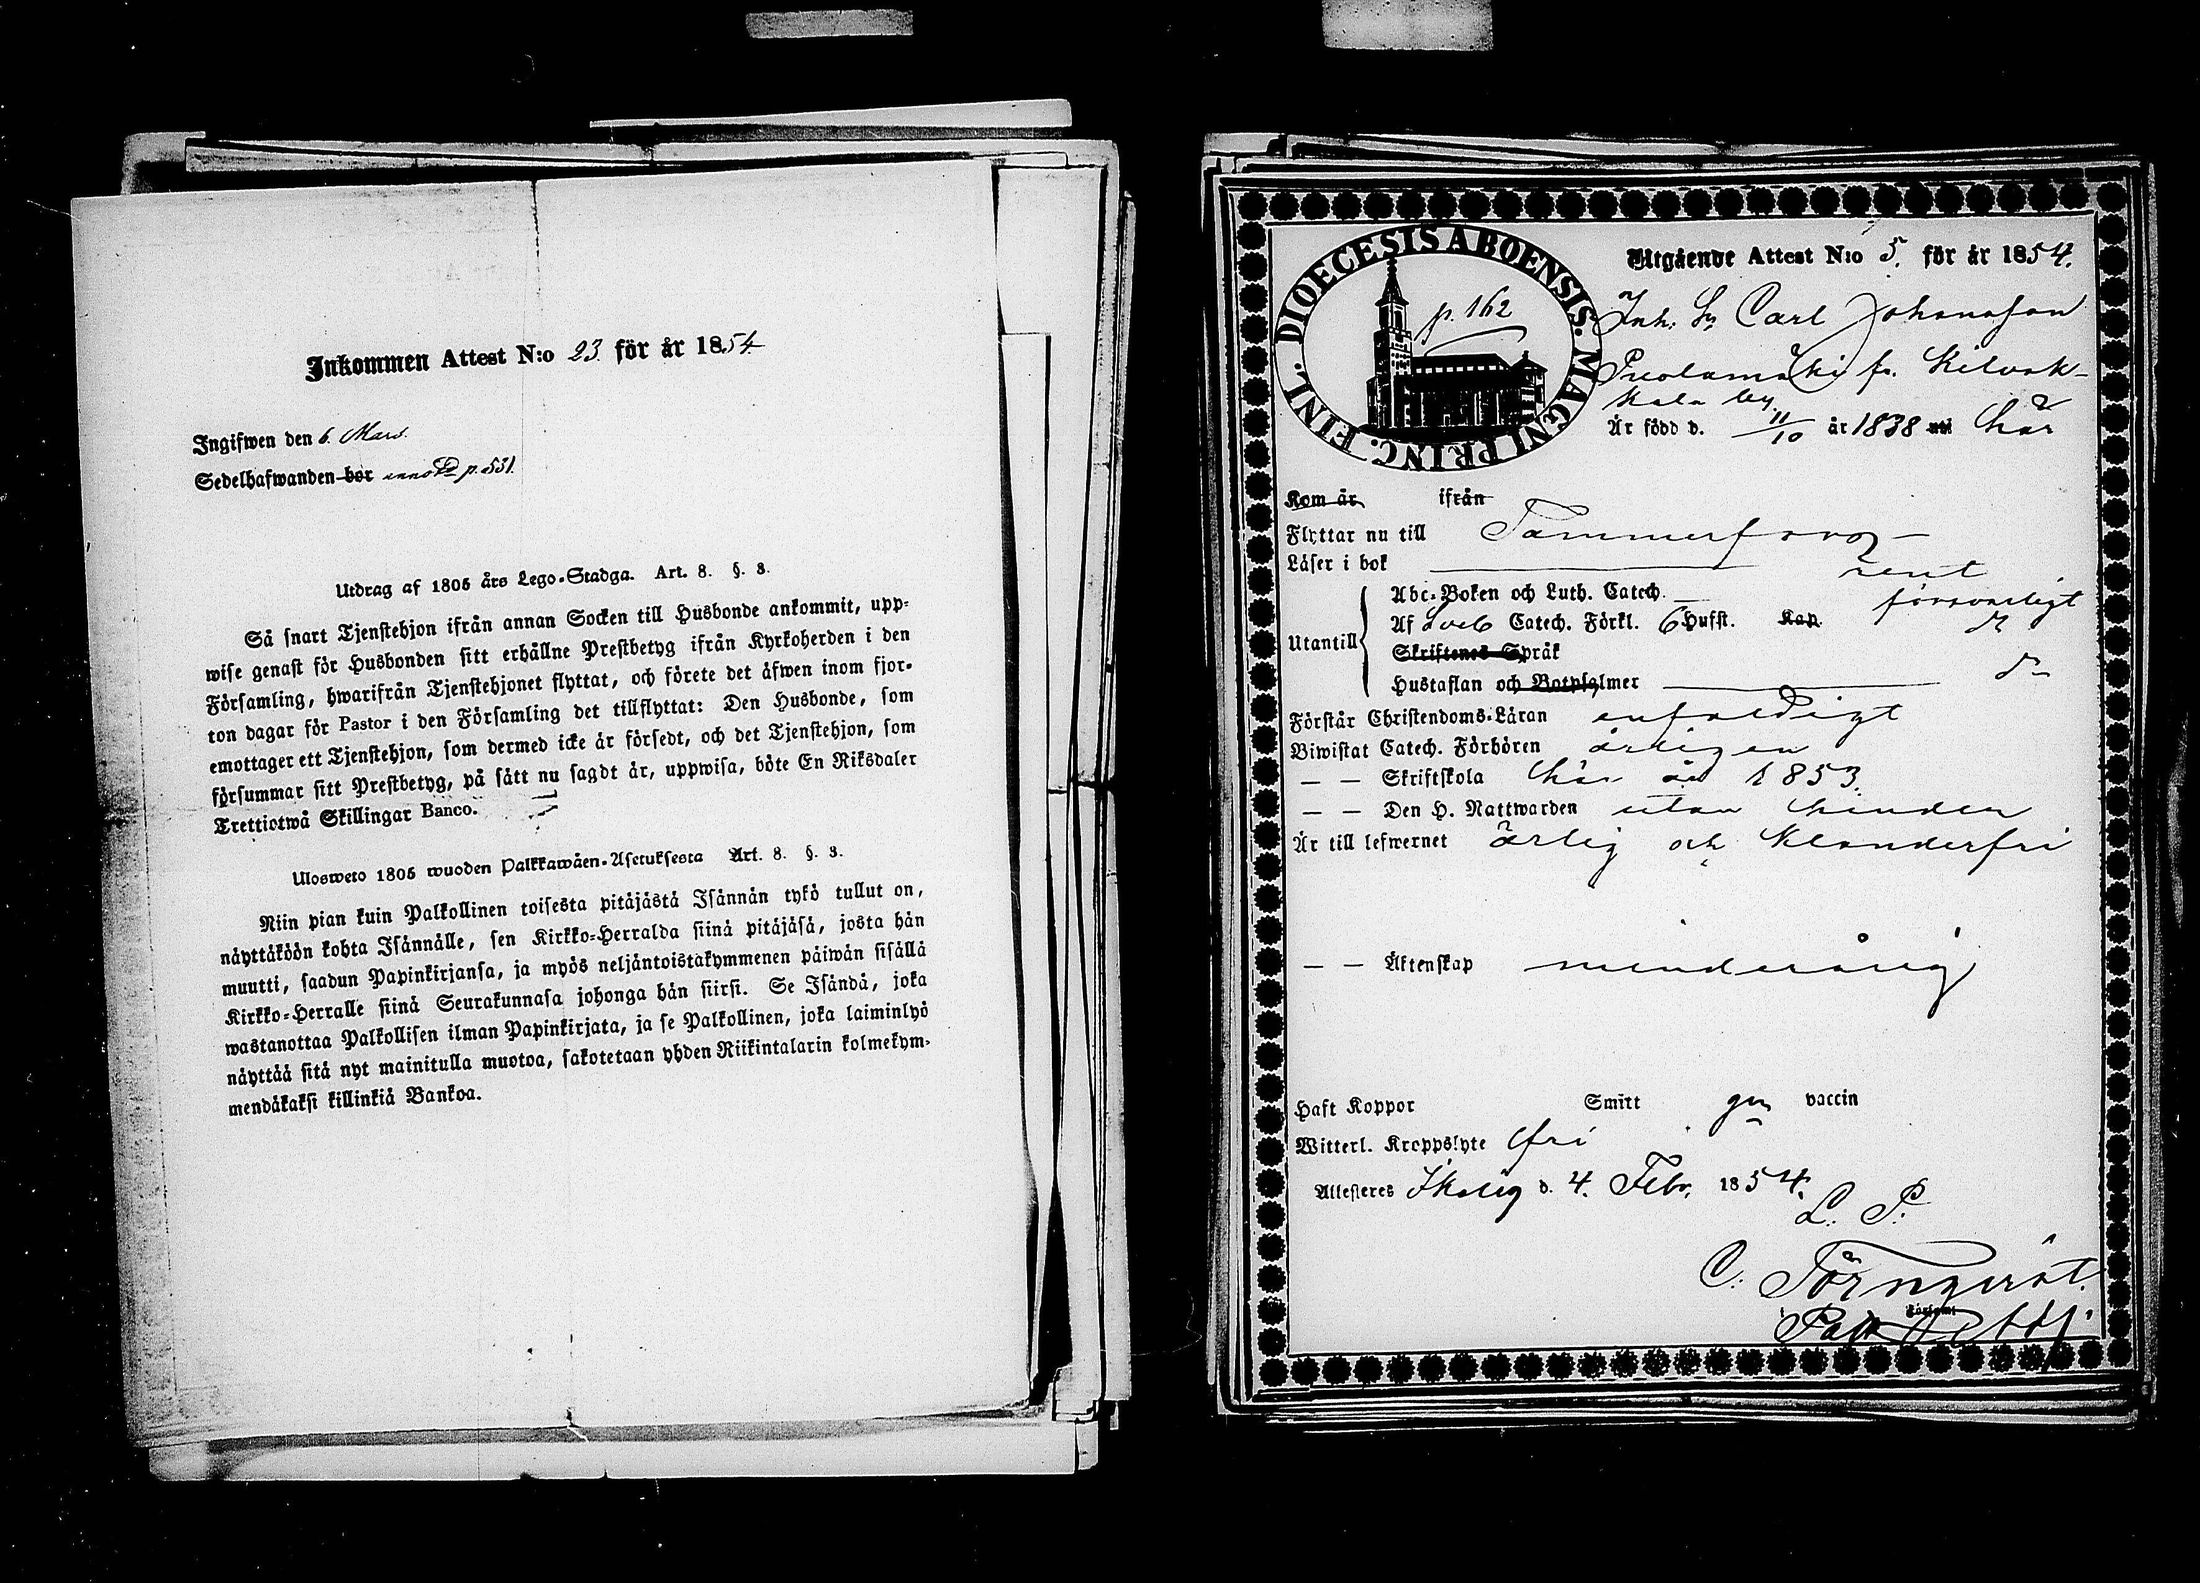 Inkommen Attest N:o 23. för år 1854.
Ingifwen den 6. Mars.
Sedelhafwanden bor p. 531.
Utdrag af 1805 års Lego-Stadga. Art. 8. §. 3.
Så snart Tjenstehjon ifrån annan Socken till Husbonde ankommit, upp-
wise genast för Husbonden sitt erhållne Prestbetyg ifrån Kyrkoherden i den
Församling, hwarifrån Tjenstehjonet flyttat, och förete det äfwen inom fjor-
ton dagar för Pastor i den Församling det tillflyttat: Den Husbonde, som
emottager ett Tjenstehjon, som dermed icke är försedt, och det Tjenstehjon, som
försummar sitt Prestbetyg, på sätt nu sagdt är, uppwisa, böte En Riksdaler
Trettiotwå Skillingar Banco.
Ulosweto 1805 wuoden Palkkawäen-Asetuksesta Art. 8. §. 3.
Niin pian kuin Palkollinen toisesta pitäjästä Isännän tykö tullut on,
näyttäköön kohta Isännälle, sen Kirkko-Herralda siinä pitäjäsä, josta hän
muutti, saadun Papinkirjansa, ja myös neljäntoistakymmenen päiwän sisällä
Kirkko-Herralle siinä Seurakunnasa johonga hän siirsi. Se Isändä, joka
wastanottaa Palkollisen ilman Papinkirjata, ja se Palkollinen, joka laiminlyö
näyttää sitä nyt mainitulla muotoa, sakotetaan yhden Riikintalarin kolmekym-
mendäkaksi killinkiä Bankoa.
DIOECESIS ABOENSIS. MAGNI PRINC. FINL.
p. 162
Utgående Attest N:o 5. för år 1854.
Inh. Sn Carl Johansson
fr. Kilvak-
kala by.
Är född d. 11/10 år 1838 uti här
Kom år ifrån
Flyttar nu till Tammerfors
Läser i bok rent
Utantill
Abc-Boken och Luth. Catech. försvarligt
Af Sveb Catech. Förkl. 6 Hufst. Kap. d:o
Skriftenes Språk
Hustaflan och Botpsalmer d:o
Förstår Christendoms-Läran enfaldigt
Biwistat Catech. Förhören årligen
— — Skriftskola här år 1853.
— — Den H. Nattwarden utan hinder
Är till lefwernet ärlig och klanderfri
— — Äktenskap minderårig
Haft Koppor Smitt gm vaccin
Witterl. Kroppslyte fri
Attesteres Ikalis d. 4. Febr. 1854.
L. P.
C. Törnqvist.
Församl.